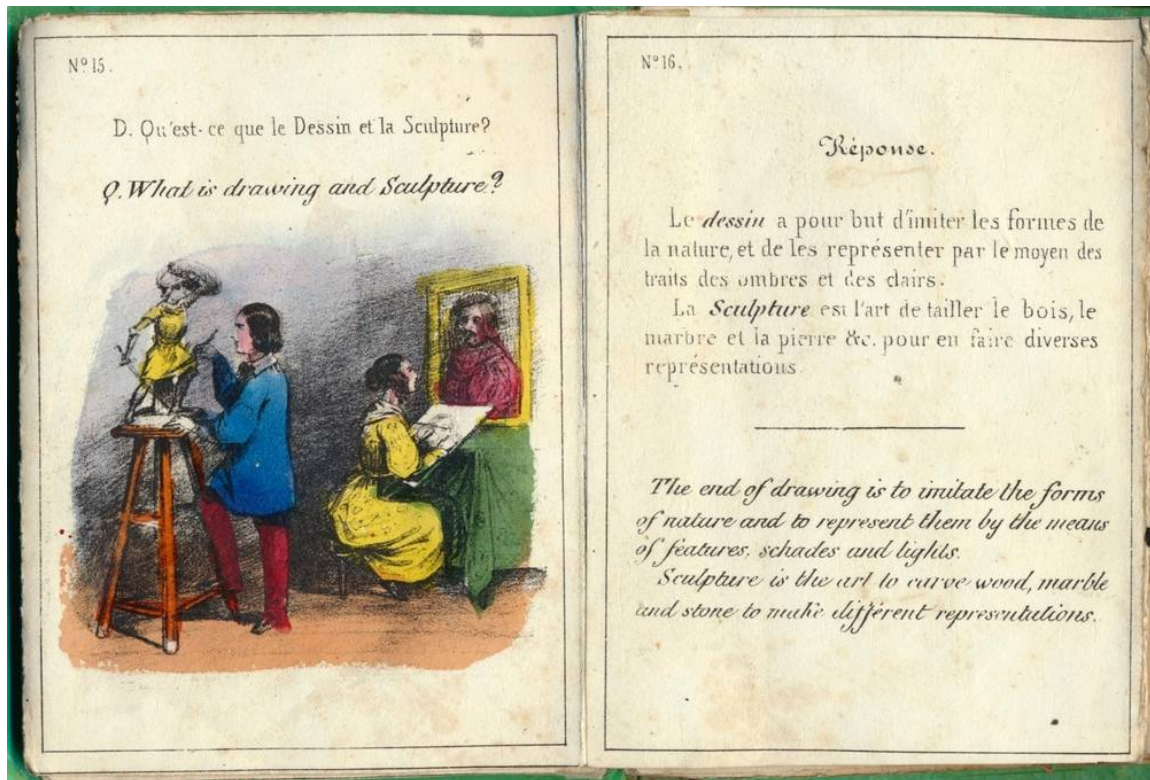 Nº 15.
D. Qu'est-ce que le Dessin et la Sculpture?
Q. What is drawing and Sculpture?
Nº 16.
Réponse.
Le dessin a pour but d'imiter les formes de
la nature, et de les représenter par le moyen des
traits des ombres et des clairs.
La Sculpture est l'art de tailler le bois, le
marbre et la pierre &c. pour en faire diverses
représentations.
The end of drawing is to imitate the forms
of nature and to represent them by the means
of features, schades and lights.
Sculpture is the art to carve wood, marble
and stone to make différent representations.